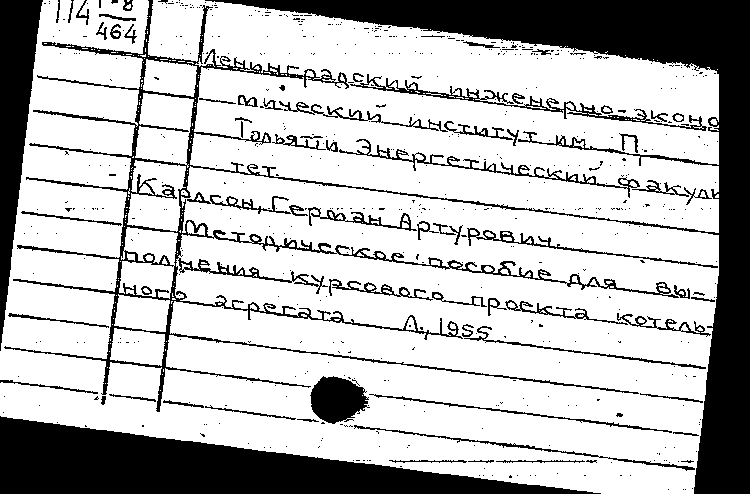 П4 Г-8
464
Ленинградский инженерно-эконо
мический институт им. П.
Тольятти Энергетический факуль
тет.
Карлсон, Герман Артурович.
Методическое пособие для вы=
полнения курсового проекта котель-
ного агрегата. Л., 1955